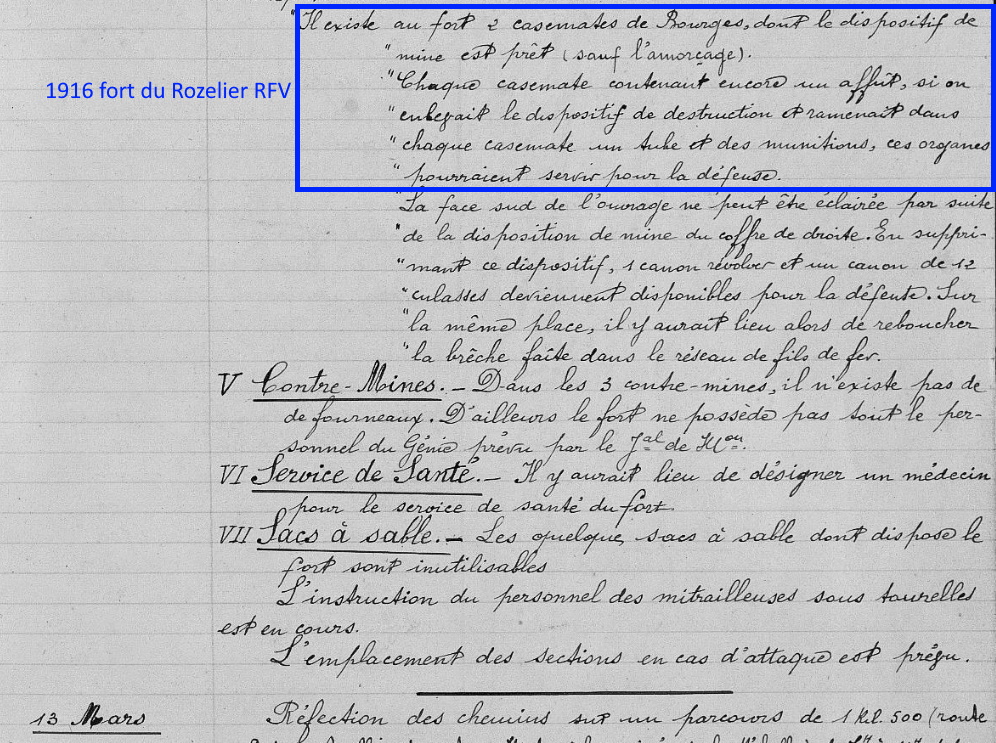 "Il existe au fort 2 casemates de Bourges, dont le dispositif de
"mine est prêt (sauf l'amorçage).
1916 fort du Rozelier RFV
"Chaque casemate contenant encore un affût, si on
"enlevait le dispositif de destruction et ramenait dans
"chaque casemate un tube et des munitions, ces organes
"pourraient servir pour la défense.
"La face sud de l'ouvrage ne peut être éclairée par suite
"de la disposition de mine du coffre de droite. En suppri-
"mant ce dispositif, 1 canon révolver et un canon de 12
"culasses deviennent disponibles pour la défense. Sur
"la même place, il y aurait lieu alors de reboucher
"la brêche faîte dans le réseau de fils de fer.
V Contre-Mines. - Dans les 3 contre-mines, il n'existe pas de
de fourneaux. D'ailleurs le fort ne possède pas tout le per-
sonnel du Génie prévu par le Jal de Mon.
VI Service de Santé. - Il y aurait lieu de désigner un médecin
pour le service de santé du fort.
VII Sacs à sable. - Les quelques sacs à sable dont dispose le
fort sont inutilisables
L'instruction du personnel des mitrailleuses sous tourelles
est en cours.
L'emplacement des sections en cas d'attaque est prévu.
13 Mars Réfection des chemins sur un parcours de 1 kil. 500 (route